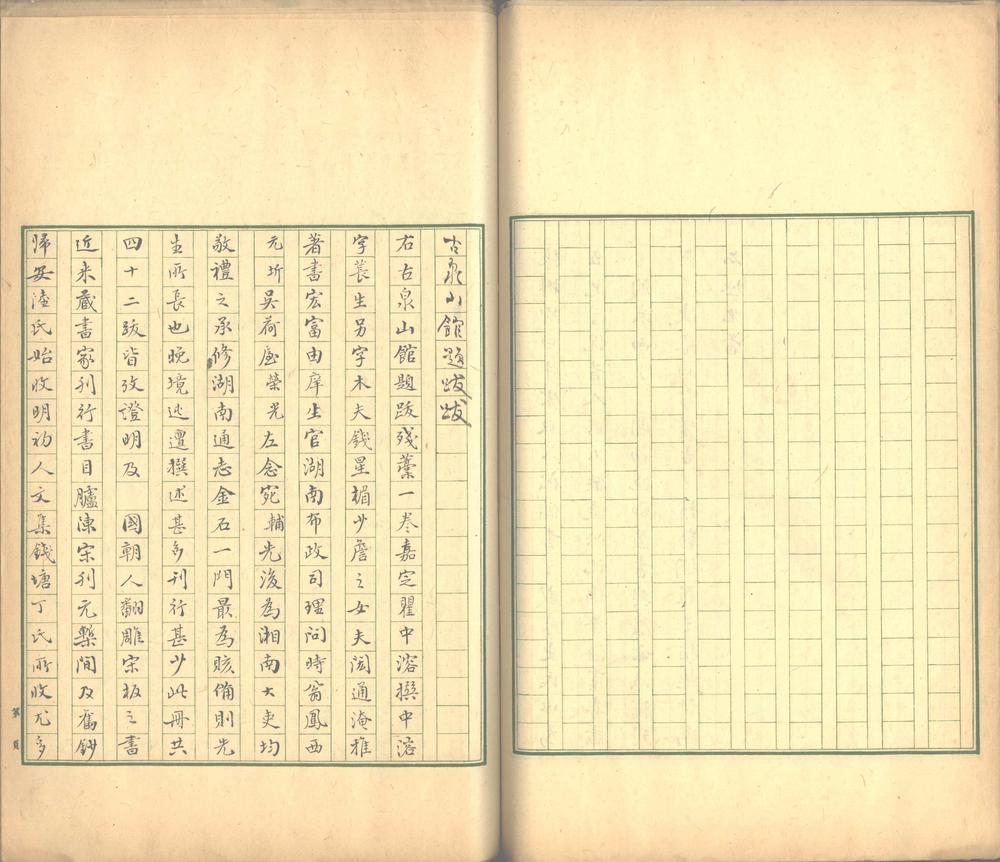 古泉山館題跋跋
右古泉山館題跋殘藁一卷嘉定瞿中溶撰中溶
字萇生另字木夫錢星楣少詹之女夫閎通淹雅
著書宏富由庠生官湖南布政司理問時翁鳳西
元圻吳荷屋榮光左念宛輔先後為湘南大吏均
敬禮之承修湖南通志金石一門最為賅備則先
生所長也晚境迍邅撰述甚多刊行甚少此冊共
四十二跋皆攷證明及 國朝人翻雕宋板之書
近来藏書家刊行書目臚涷宋刊元槧間及舊鈔
歸安陸氏始收明初人文集錢塘丁氏所收尤多
第 頁